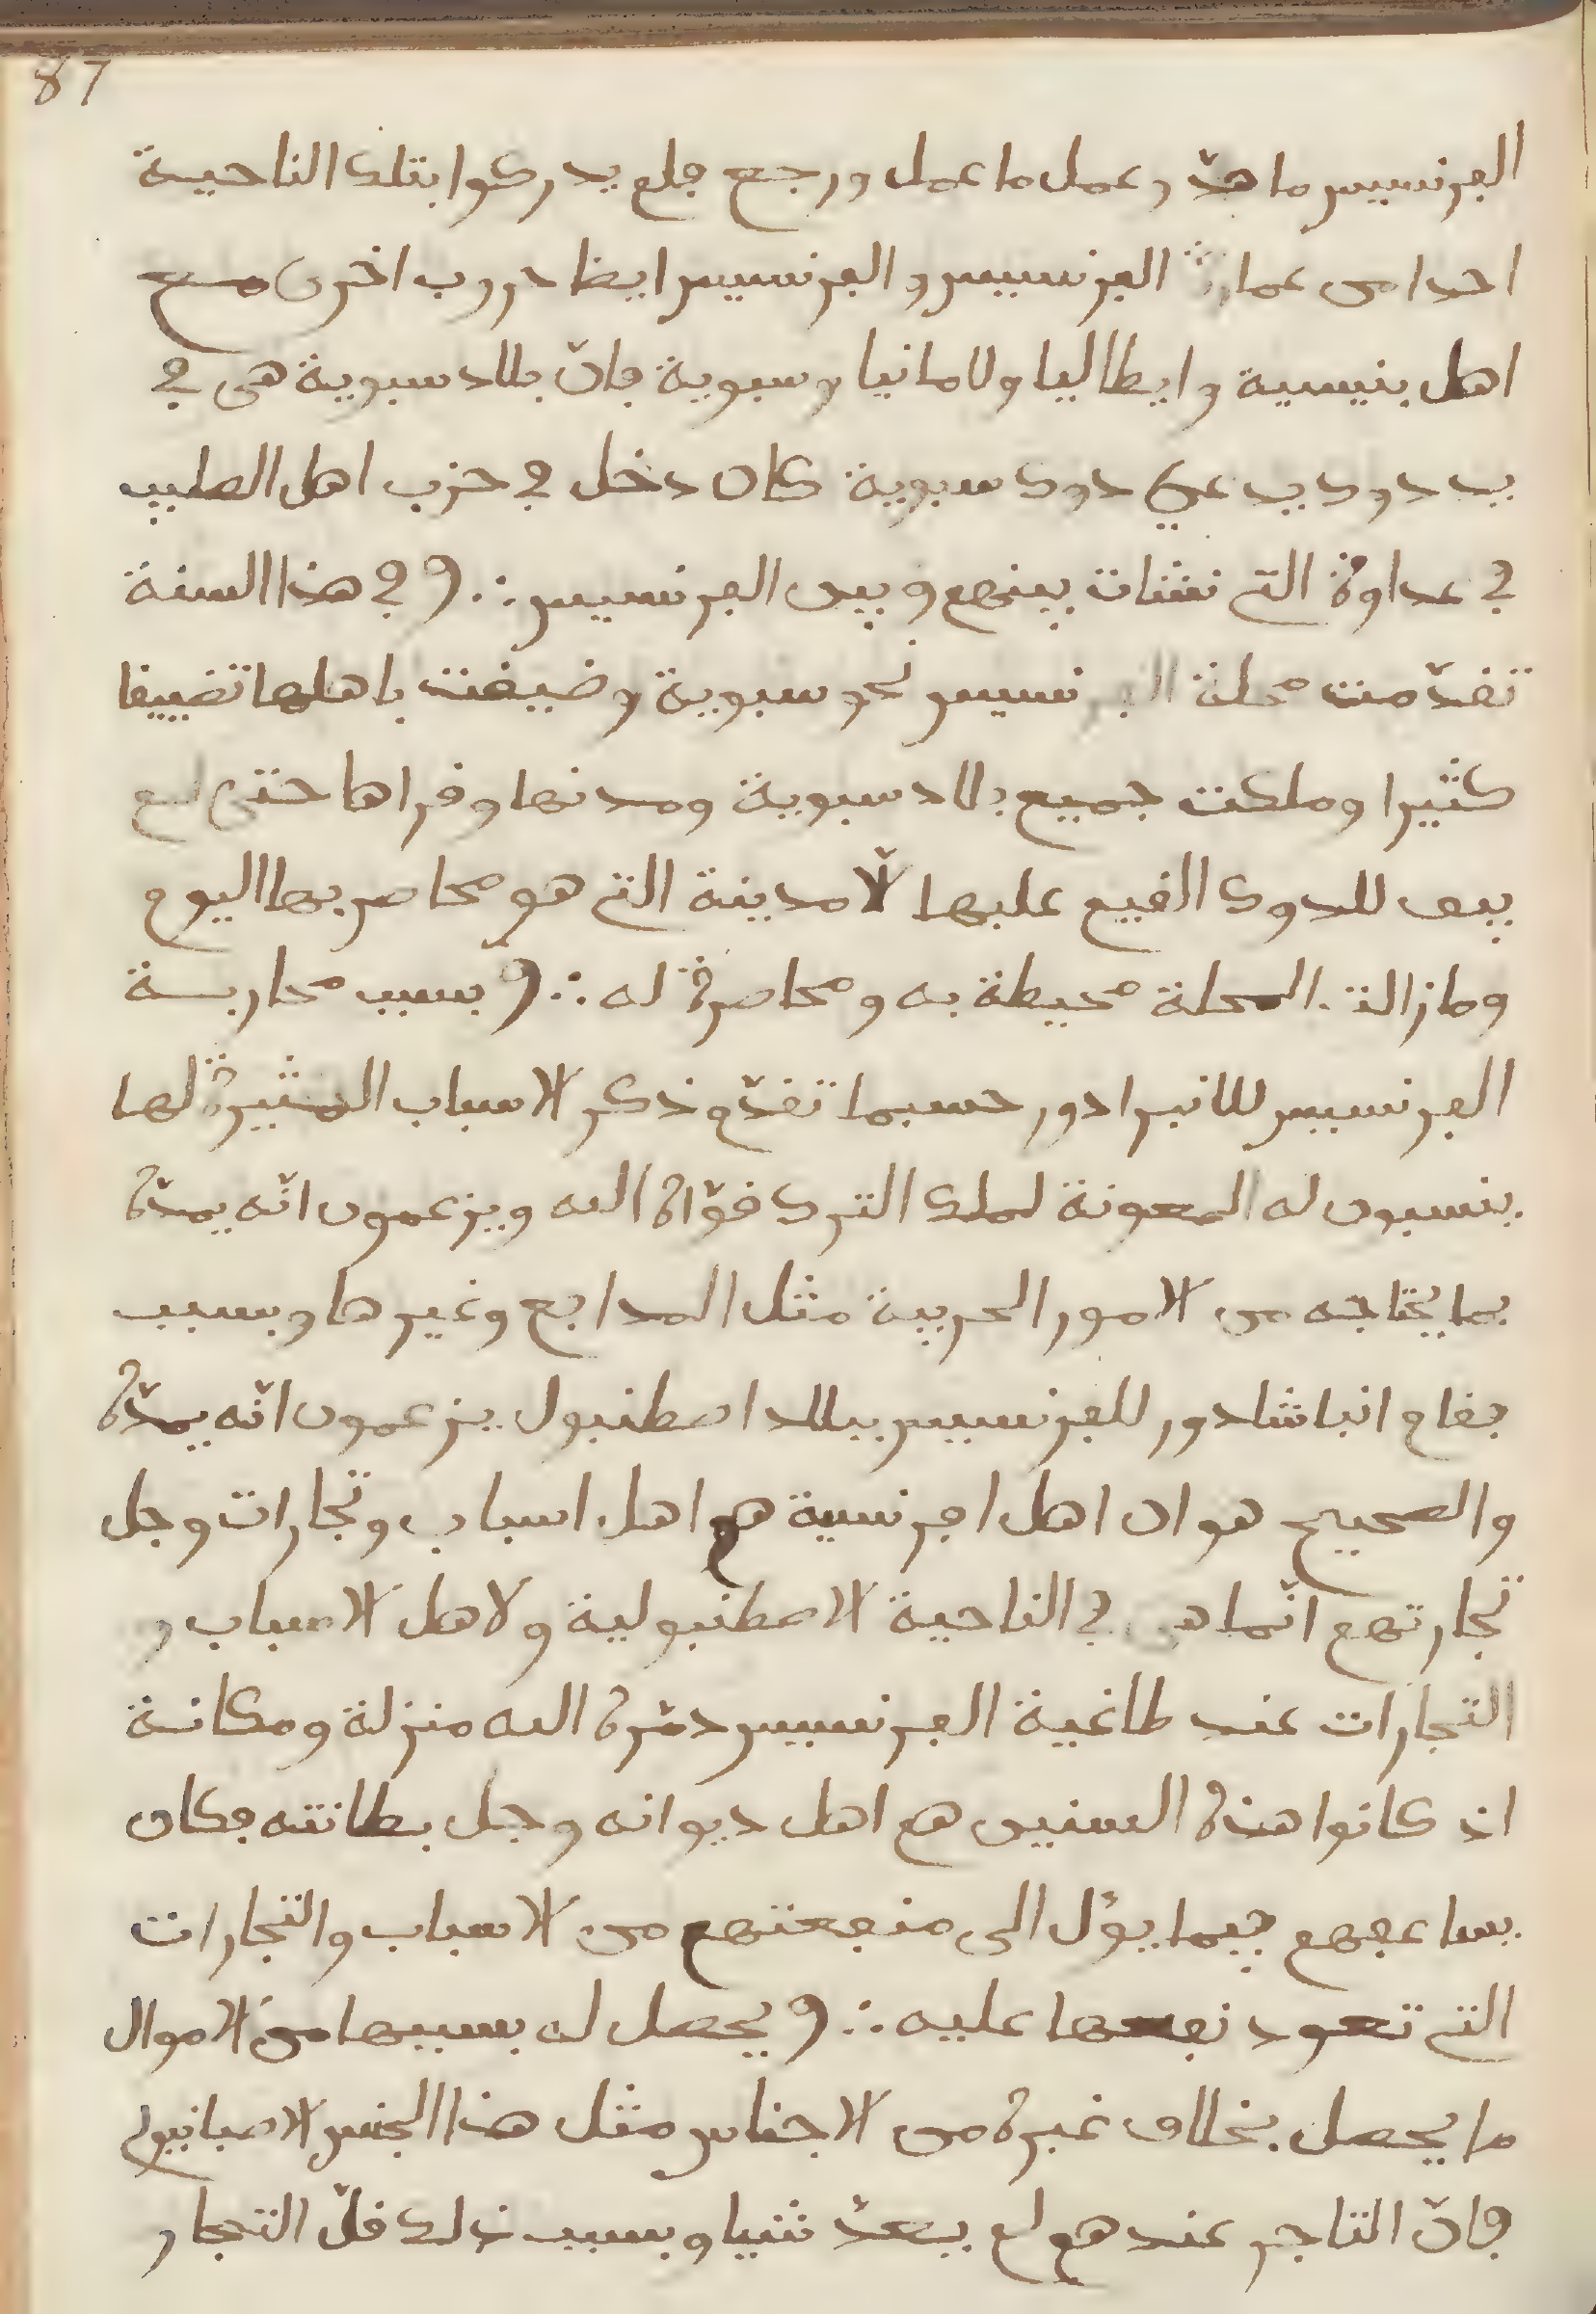 87
الفرنسيس ما هدّ وعمل ما عمل ورجع فلم يدركوا بتلك الناحية
احدا من عمارة الفرنسيس وللفرنسيس ايظا حروب اخرى مع
اهل بنيسية وايطاليا ولامانيا وسبوية فانّ بلاد سبوية هى في
يد دوك يدعى دوك سبوية كان دخل في حزب اهل الصليب
في عداوة التي نشات بينهم وبين الفرنسيس ∴ وفي هذا السنة
تقدّمت محلة الفرنسيس نحو سبوية وضيقت باهلها تضييقا
كثيرا وملكت جميع بلاد سبوية ومدنها وقراها حتى لم
يبق للدوك القيم عليها الّا مدينة التي هو محاصر بها اليوم
وما زالت المحلة محيطة به ومحاصرة له ∴ وبسبب محاربة
الفرنسيس للانبرادور حسبما تقدّم ذكر الاسباب المثيرة لها
ينسبون له المعونة لملك الترك قوّاه الله ويزعمون انّه يمدّه
بما يحتاجه من الامور الحربية مثل المدافع وغيرها وبسبب
مقام انباشادور للفرنسيس ببلاد اصطنبول يزعمون انّه يمدّه
والصحيح هو ان اهل افرنسية هم اهل اسباب وتجارات وجل
تجارتهم انّما هى في الناحية الاصطنبولية ولاهل الاسباب و
التجارات عند طاغية الفرنسيس دمّره الله منزلة ومكانة
اذ كانوا هذه السنين هم اهل ديوانه وجل بطانته فكان
يساعفهم فيما يؤل الى منفعتهم من الاسباب والتجارات
التي تعود نفعها عليه ∴ ويحصل له بسببها من الاموال
ما يحصل بخلاف غيره من الاجناس مثل هذا الجنس الاصبانيول
فانّ التاجر عندهم لم يعدّ شيا وبسبب ذلك قلّ التجار